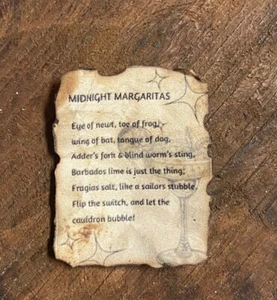 MIDNIGHT MARGARITAS
Eye of newt, toe of frog,
wing of bat, tongue of dog,
Adder's fork & blind worm's sting,
Barbados lime is just the thing,
Fragias salt, like a sailors stubble,
Flip the switch, and let the
cauldron bubble!